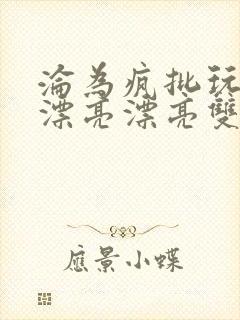 淪為疯批玩
漂亮漂亮雙
應景小蝶